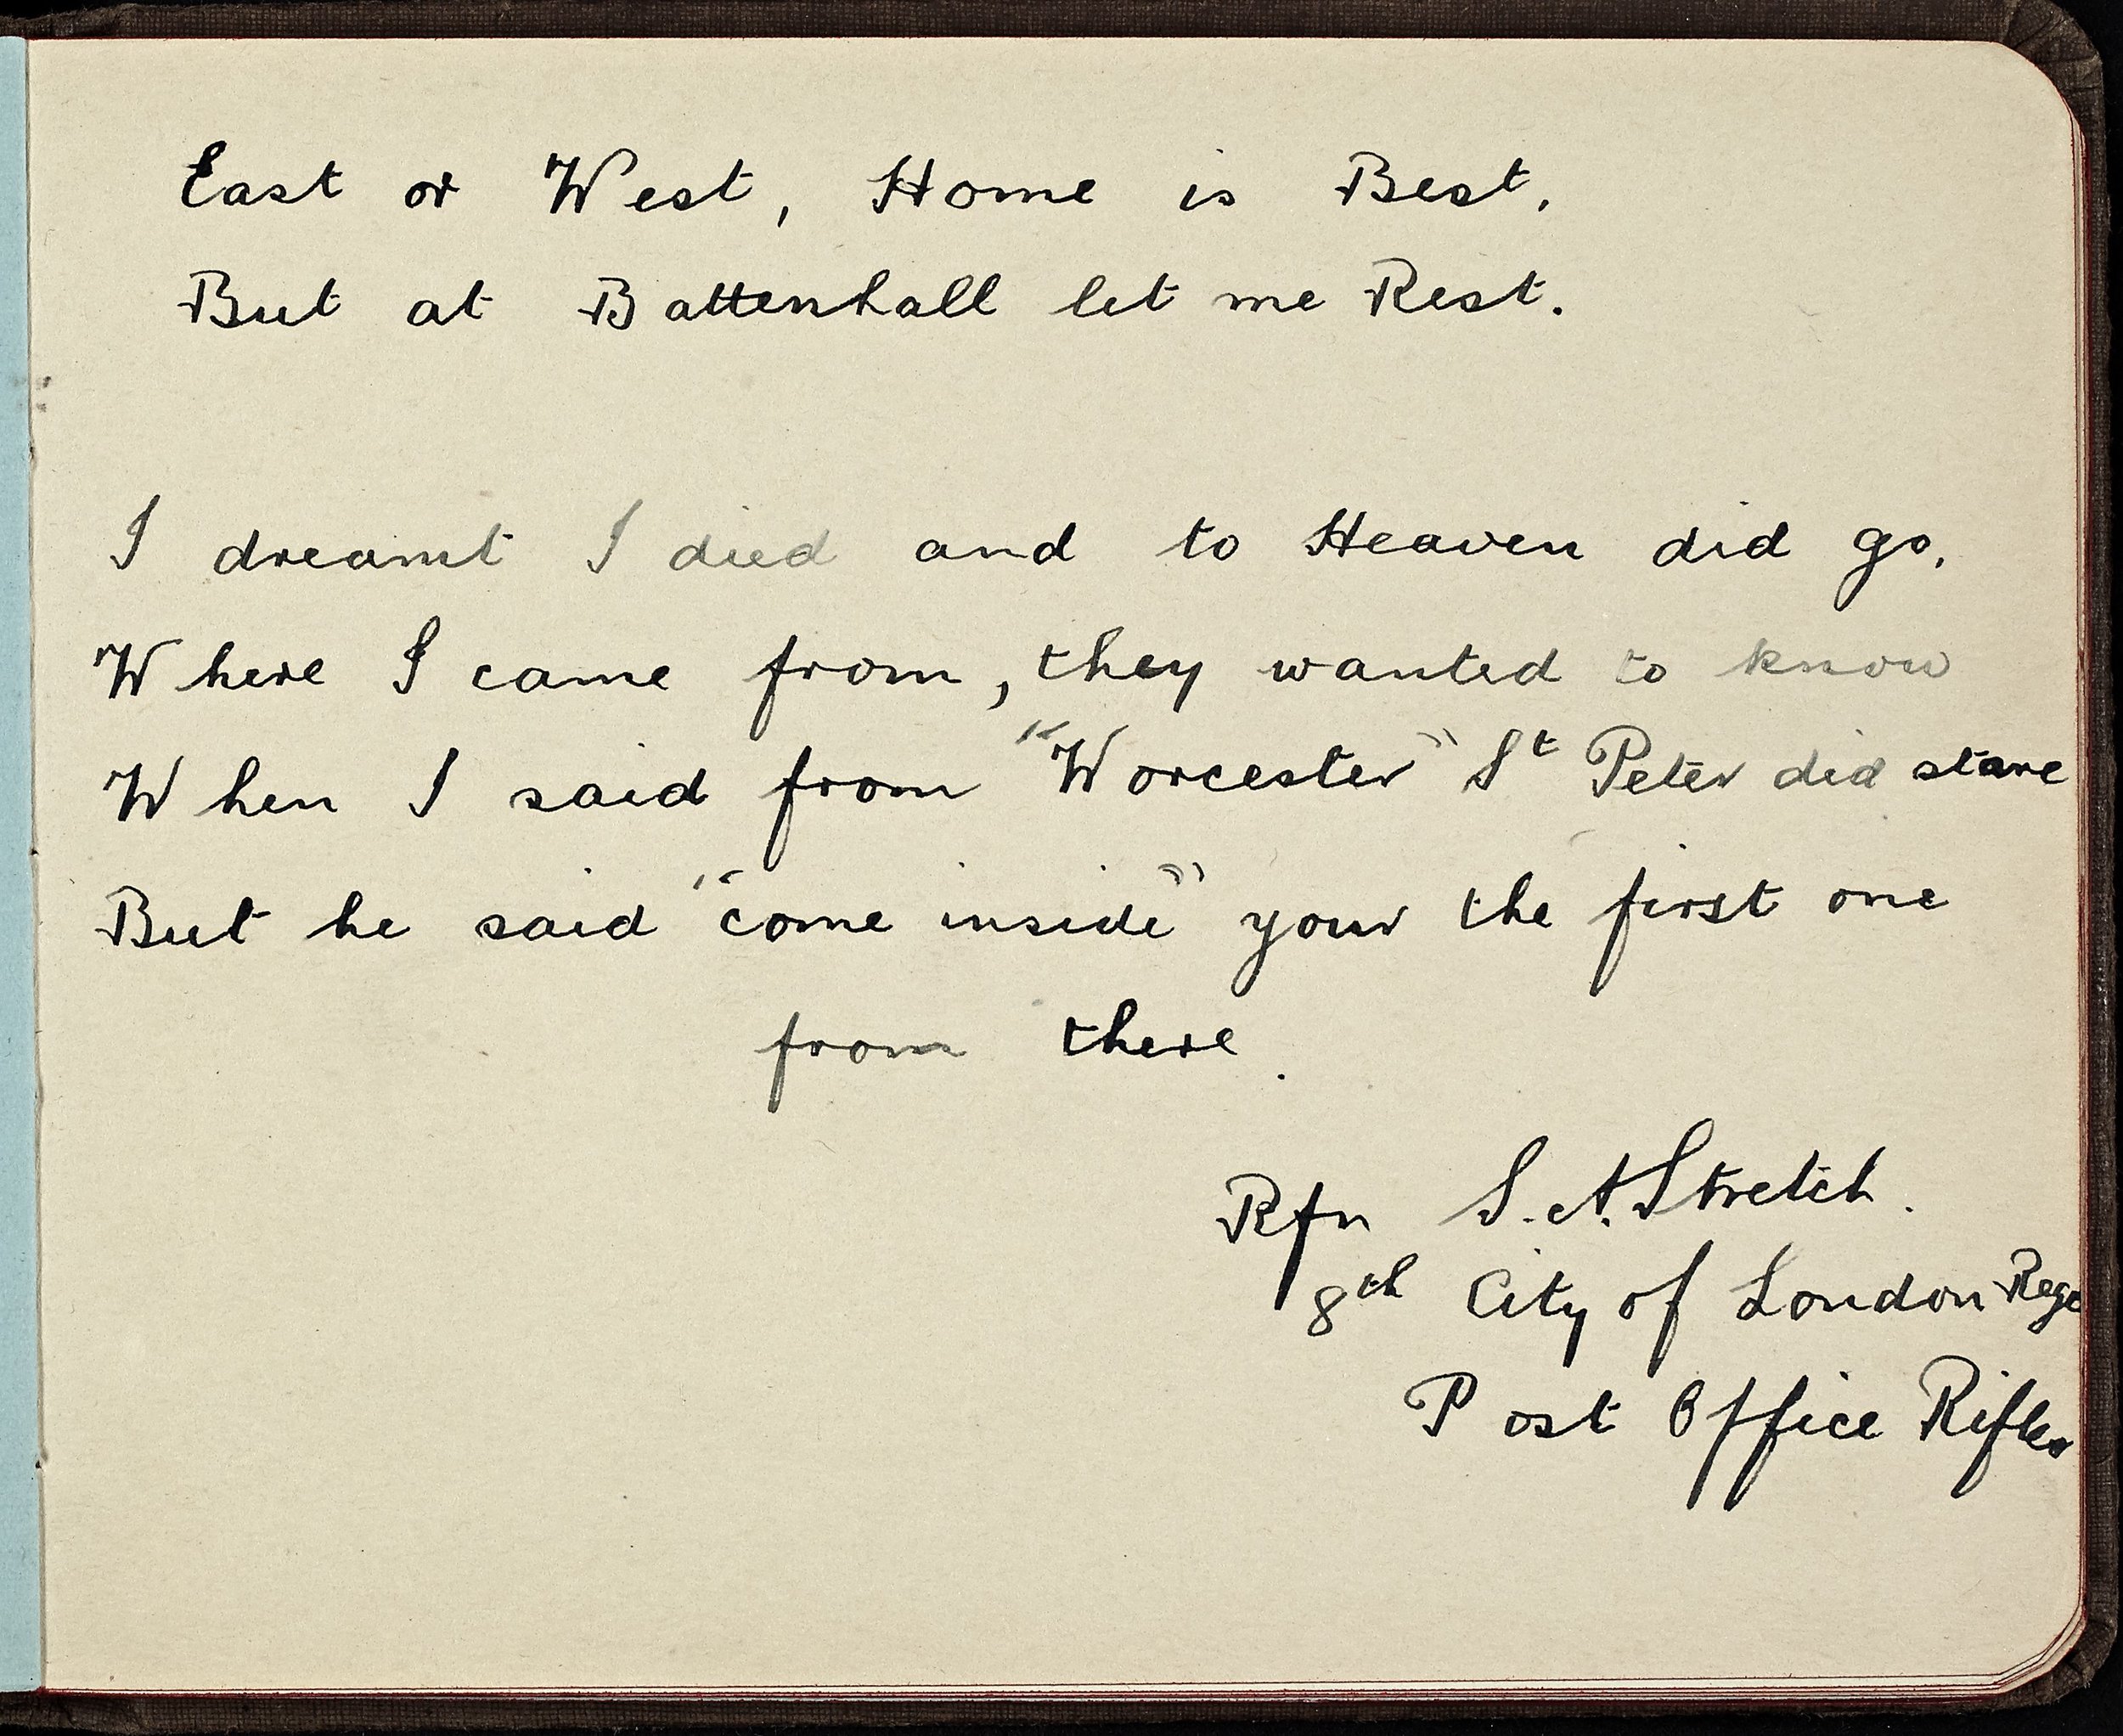 East or West, Home is Best.
But at Battenhall let me Rest.
I dreamt I died and to Heaven did go,
Where I came from, they wanted to know
When I said from "Worcester" St Peter did stare
But he said "come inside" your the first one
from there.
Rfn S. A. Stretch.
8th City of London Regt
Post Office Rifles